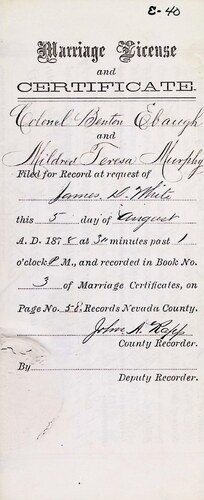 E-40
Marriage License
and
CERTIFICATE.
Colonel Benton Ebaugh
and
Mildred Teresa Murphy
Filed for Record at request of
James D. White
this 5 day of August
A. D. 1878 at 30 minutes past 1
o'clock P M., and recorded in Book No.
3 of Marriage Certificates, on
Page No. 58. Records Nevada County.
John A. Rapp
County Recorder.
By
Deputy Recorder.